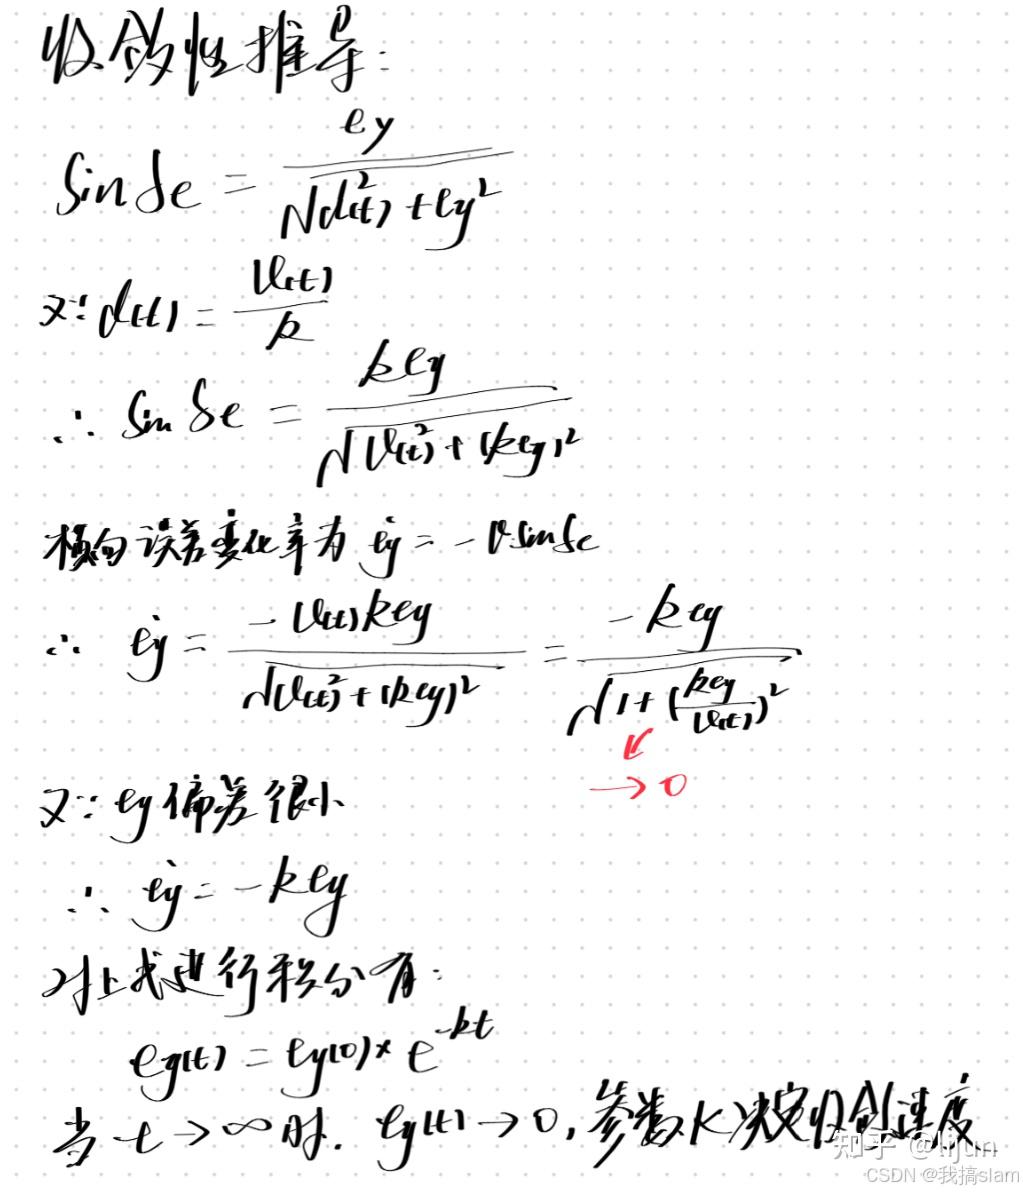 收敛性推导:
sin δe = ey / √(d(t)² + ey²)
又∵ d(t) = v(t) / k
∴ sin δe = key / √(v(t)² + (key)²)
横向误差变化率为 ėy = -v sin δe
∴ ėy = -v(t)key / √(v(t)² + (key)²) = -key / √(1 + (key / v(t))²)
→ 0
又∵ ey 偏差很小
∴ ėy = -key
对上式进行积分有:
ey(t) = ey(0) × e^(-kt)
当 t → ∞ 时. ey(t) → 0, 参数 K 决定收敛速度
知乎 @lijun
CSDN @我搞slam